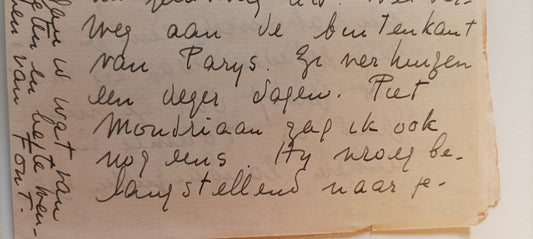 weg aan de buitenkant
van Parys. Ze verhuizen
een dezer dagen. Piet
Mondriaan zag ik ook
nog eens. Hy vroeg be-
langstellend naar je-
wat van
en beste wen-
van Font.